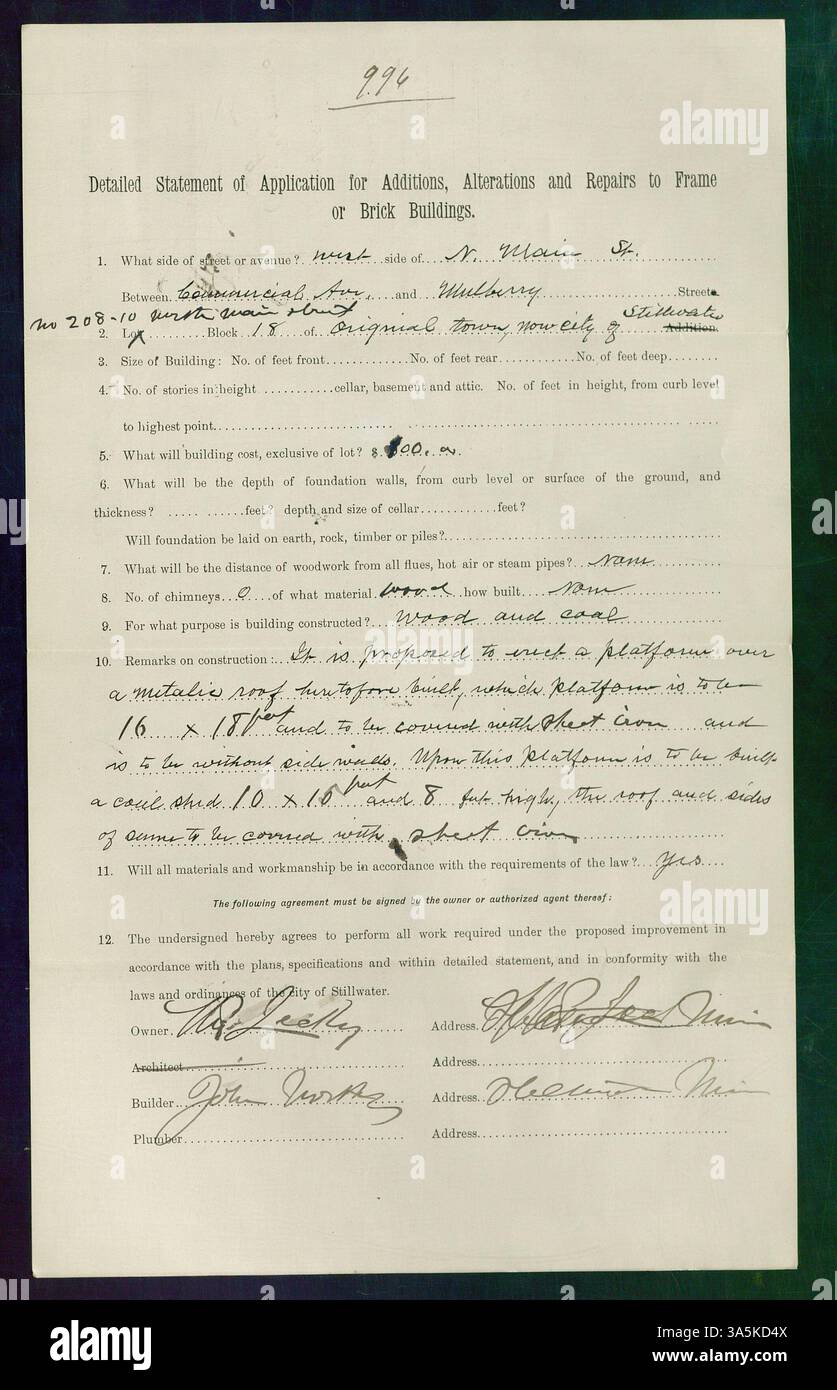 996
Detailed Statement of Application for Additions, Alterations and Repairs to Frame
or Brick Buildings.
1. What side of street or avenue? west side of N. Main St.
Between Commercial Ave. and Mulberry Streets.
no 208-10 north main street
2. Lot Block 18 of original town, now city of Stillwater Addition.
3. Size of Building: No. of feet front No. of feet rear No. of feet deep
4. No. of stories in height cellar, basement and attic. No. of feet in height, from curb level
to highest point.
5. What will building cost, exclusive of lot? $ 100.00
6. What will be the depth of foundation walls, from curb level or surface of the ground, and
thickness? feet? depth and size of cellar feet?
Will foundation be laid on earth, rock, timber or piles?
7. What will be the distance of woodwork from all flues, hot air or steam pipes? None
8. No. of chimneys 0 of what material wood how built None
9. For what purpose is building constructed? Wood and coal
10. Remarks on construction: It is proposed to erect a platform over
a metalic roof heretofore built, which platform is to be
16 x 18 feet and to be covered with sheet iron and
is to be without side walls. Upon this platform is to be built
a coal shed 10 x 10 feet and 8 feet high, the roof and sides
of same to be covered with sheet iron
11. Will all materials and workmanship be in accordance with the requirements of the law? Yes
The following agreement must be signed by the owner or authorized agent thereof:
12. The undersigned hereby agrees to perform all work required under the proposed improvement in
accordance with the plans, specifications and within detailed statement, and in conformity with the
laws and ordinances of the city of Stillwater.
Owner. Address. Minn
Architect Address.
Builder John Address. Minn
Plumber Address.
alamy
a
Image ID: 3A5KD4X
www.alamy.com